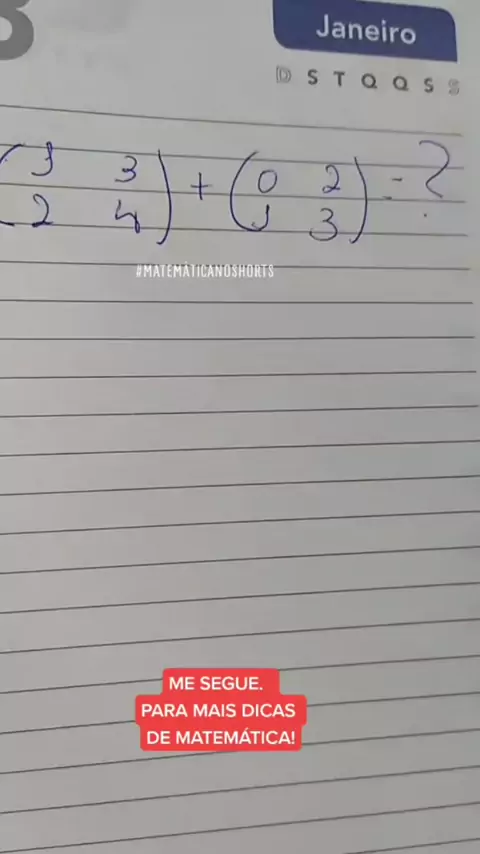 3
Janeiro
D S T Q Q S S
(1 3) + (0 2) = ?
(2 4) (1 3)
#MATEMÁTICANOSHORTS
ME SEGUE.
PARA MAIS DICAS
DE MATEMÁTICA!